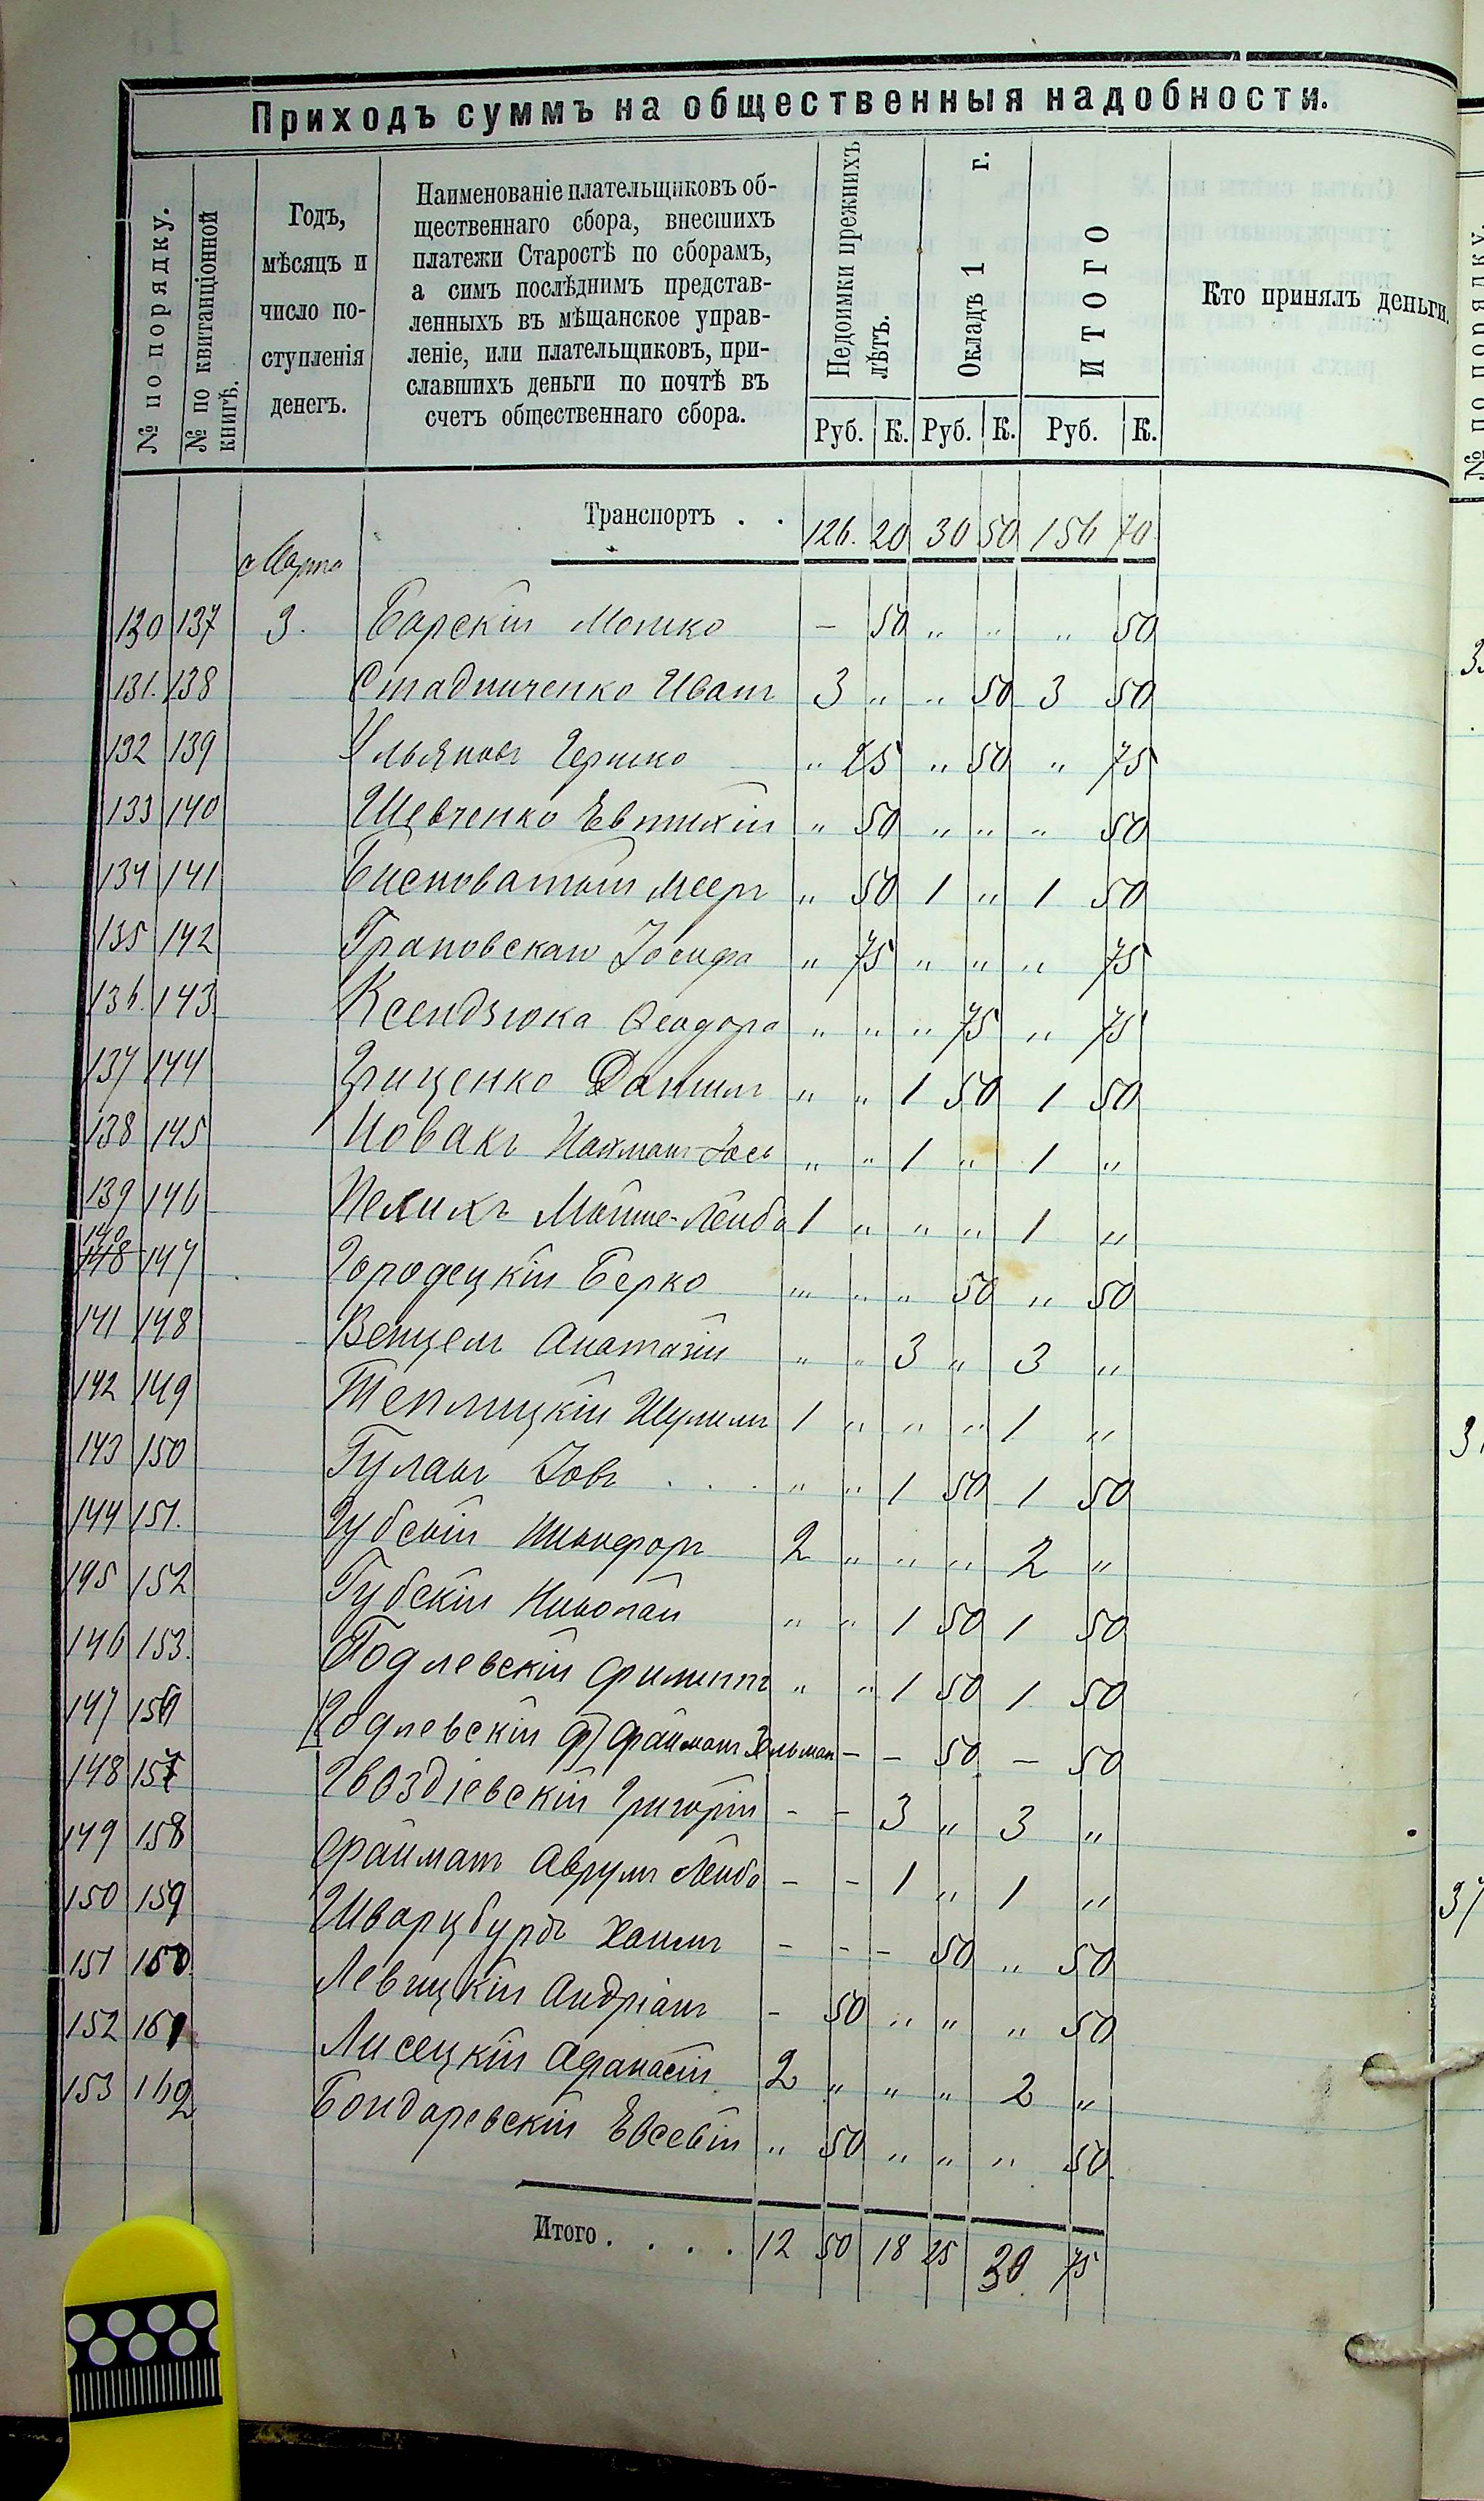 Приходъ суммъ на общественныя надобности.
№ по порядку.
№ по квитанціонной книгѣ.
Годъ, мѣсяцъ и число поступленія денегъ.
Наименованіе плательщиковъ об-
щественнаго сбора, внесшихъ
платежи Старостѣ по сборамъ,
а симъ послѣднимъ представ-
ленныхъ въ мѣщанское управ-
леніе, или плательщиковъ, при-
славшихъ деньги по почтѣ въ
счетъ общественнаго сбора.
Недоимки прежнихъ лѣтъ.
Окладъ 1 г.
ИТОГО
Кто принялъ деньги.
Руб. К. Руб. К. Руб. К.
Транспортъ . . 126. 20 30 50 156 70
Марта
130 137 3. Барскій Мошко – 50 „ „ „ 50
131. 138 Стадниченко Иванъ 3 „ „ 50 3 50
132 139 Ульяновъ Гершко „ 25 „ 50 „ 75
133 140 Шевченко Евтихій „ 50 „ „ „ 50
134 141 Бисноватый Мееръ „ 50 1 „ 1 50
135 142 Грановскаго Іосифа „ 75 „ „ „ 75
136. 143 Ксендзюка Ѳеодора „ „ „ 75 „ 75
137 144 Грищенко Даніилъ „ „ 1 50 1 50
138 145 Новакъ Нахманъ-Іось „ „ 1 „ 1 „
139 146 Мойше-Лейба 1 „ „ „ 1 „
140 147 Городецкій Берко „ „ „ 50 „ 50
141 148 Венцель Анатолій „ „ 3 „ 3 „
142 149 Теплицкій Шулимъ 1 „ „ „ 1 „
143 150 Гулакъ Іовъ . . . „ „ 1 50 1 50
144 151. Губскій Никифоръ 2 „ „ „ 2 „
145 152 Губскій Николай „ „ 1 50 1 50
146 153. Годлевскій Филиппъ „ „ 1 50 1 50
147 154 [Годлевскій Ф] Файманъ Зельман – – 50 – 50
148 157 Гвоздіевскій Григорій – – 3 „ 3 „
149 158 Файманъ Аврумъ Лейба – – 1 „ 1 „
150 159 Шварцбурдъ Хаимъ – – – 50 „ 50
151 160. Левицкій Андріанъ – 50 „ „ „ 50
152 161 Лисецкій Афанасій 2 „ „ „ 2 „
153 162 Бондаревскій Евсевій „ 50 „ „ „ 50
Итого . . . . 12 50 18 25 30 75